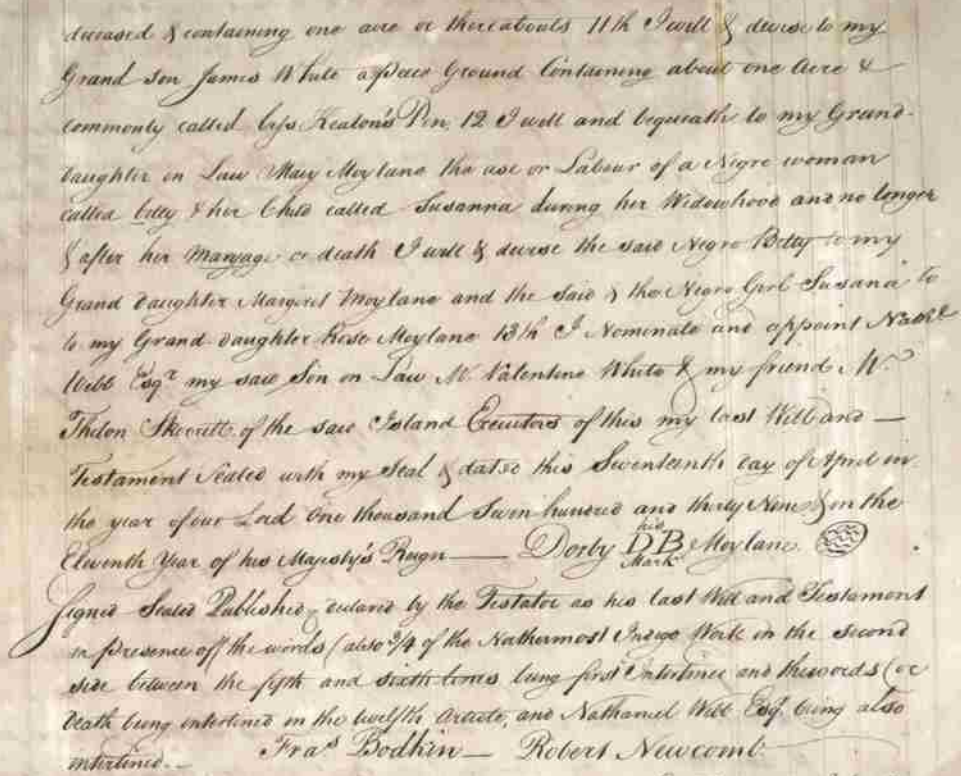 deceased & containing one acre or thereabouts 11th I will & devise to my
Grand son James White a peice Ground Containing about one Acre &
commonly called Keaton's Pen, 12 I will and bequeath to my Grand-
daughter in Law Mary Moylane the use or Labour of a Negro woman
called betty & her Child called Susanna during her Widowhood and no longer
& after her Maryage or death I will & devise the said Negro Betty to my
Grand daughter Margret Moylane and the said & the Negro Girl Susana to
to my Grand daughter Rose Moylane 13th I Nominate and appoint Nathl
Webb Esqr my said Son in Law Mr Valentine White & my friend Mr
Skerrett of the said Island Executors of this my last Will and —
Testament Sealed with my Seal & dated this Seventeenth day of April in
the year of our Lord One thousand Seven hundred and thirty Nine & in the
Eleventh Year of his Majesty's Reign —— Dorby his DB Mark Moylane
Signed Sealed Published & declared by the Testator as his last Will and Testament
in presence off the words (also 3/4 of the Nothermost Indigo Work in the Second
side between the fifth and sixth lines being first Interlined and the words (or
death being interlined in the twelfth Article, and Nathaniel Webb Esqr. being also
interlined.— Fras Bodkin — Robert Newcomb